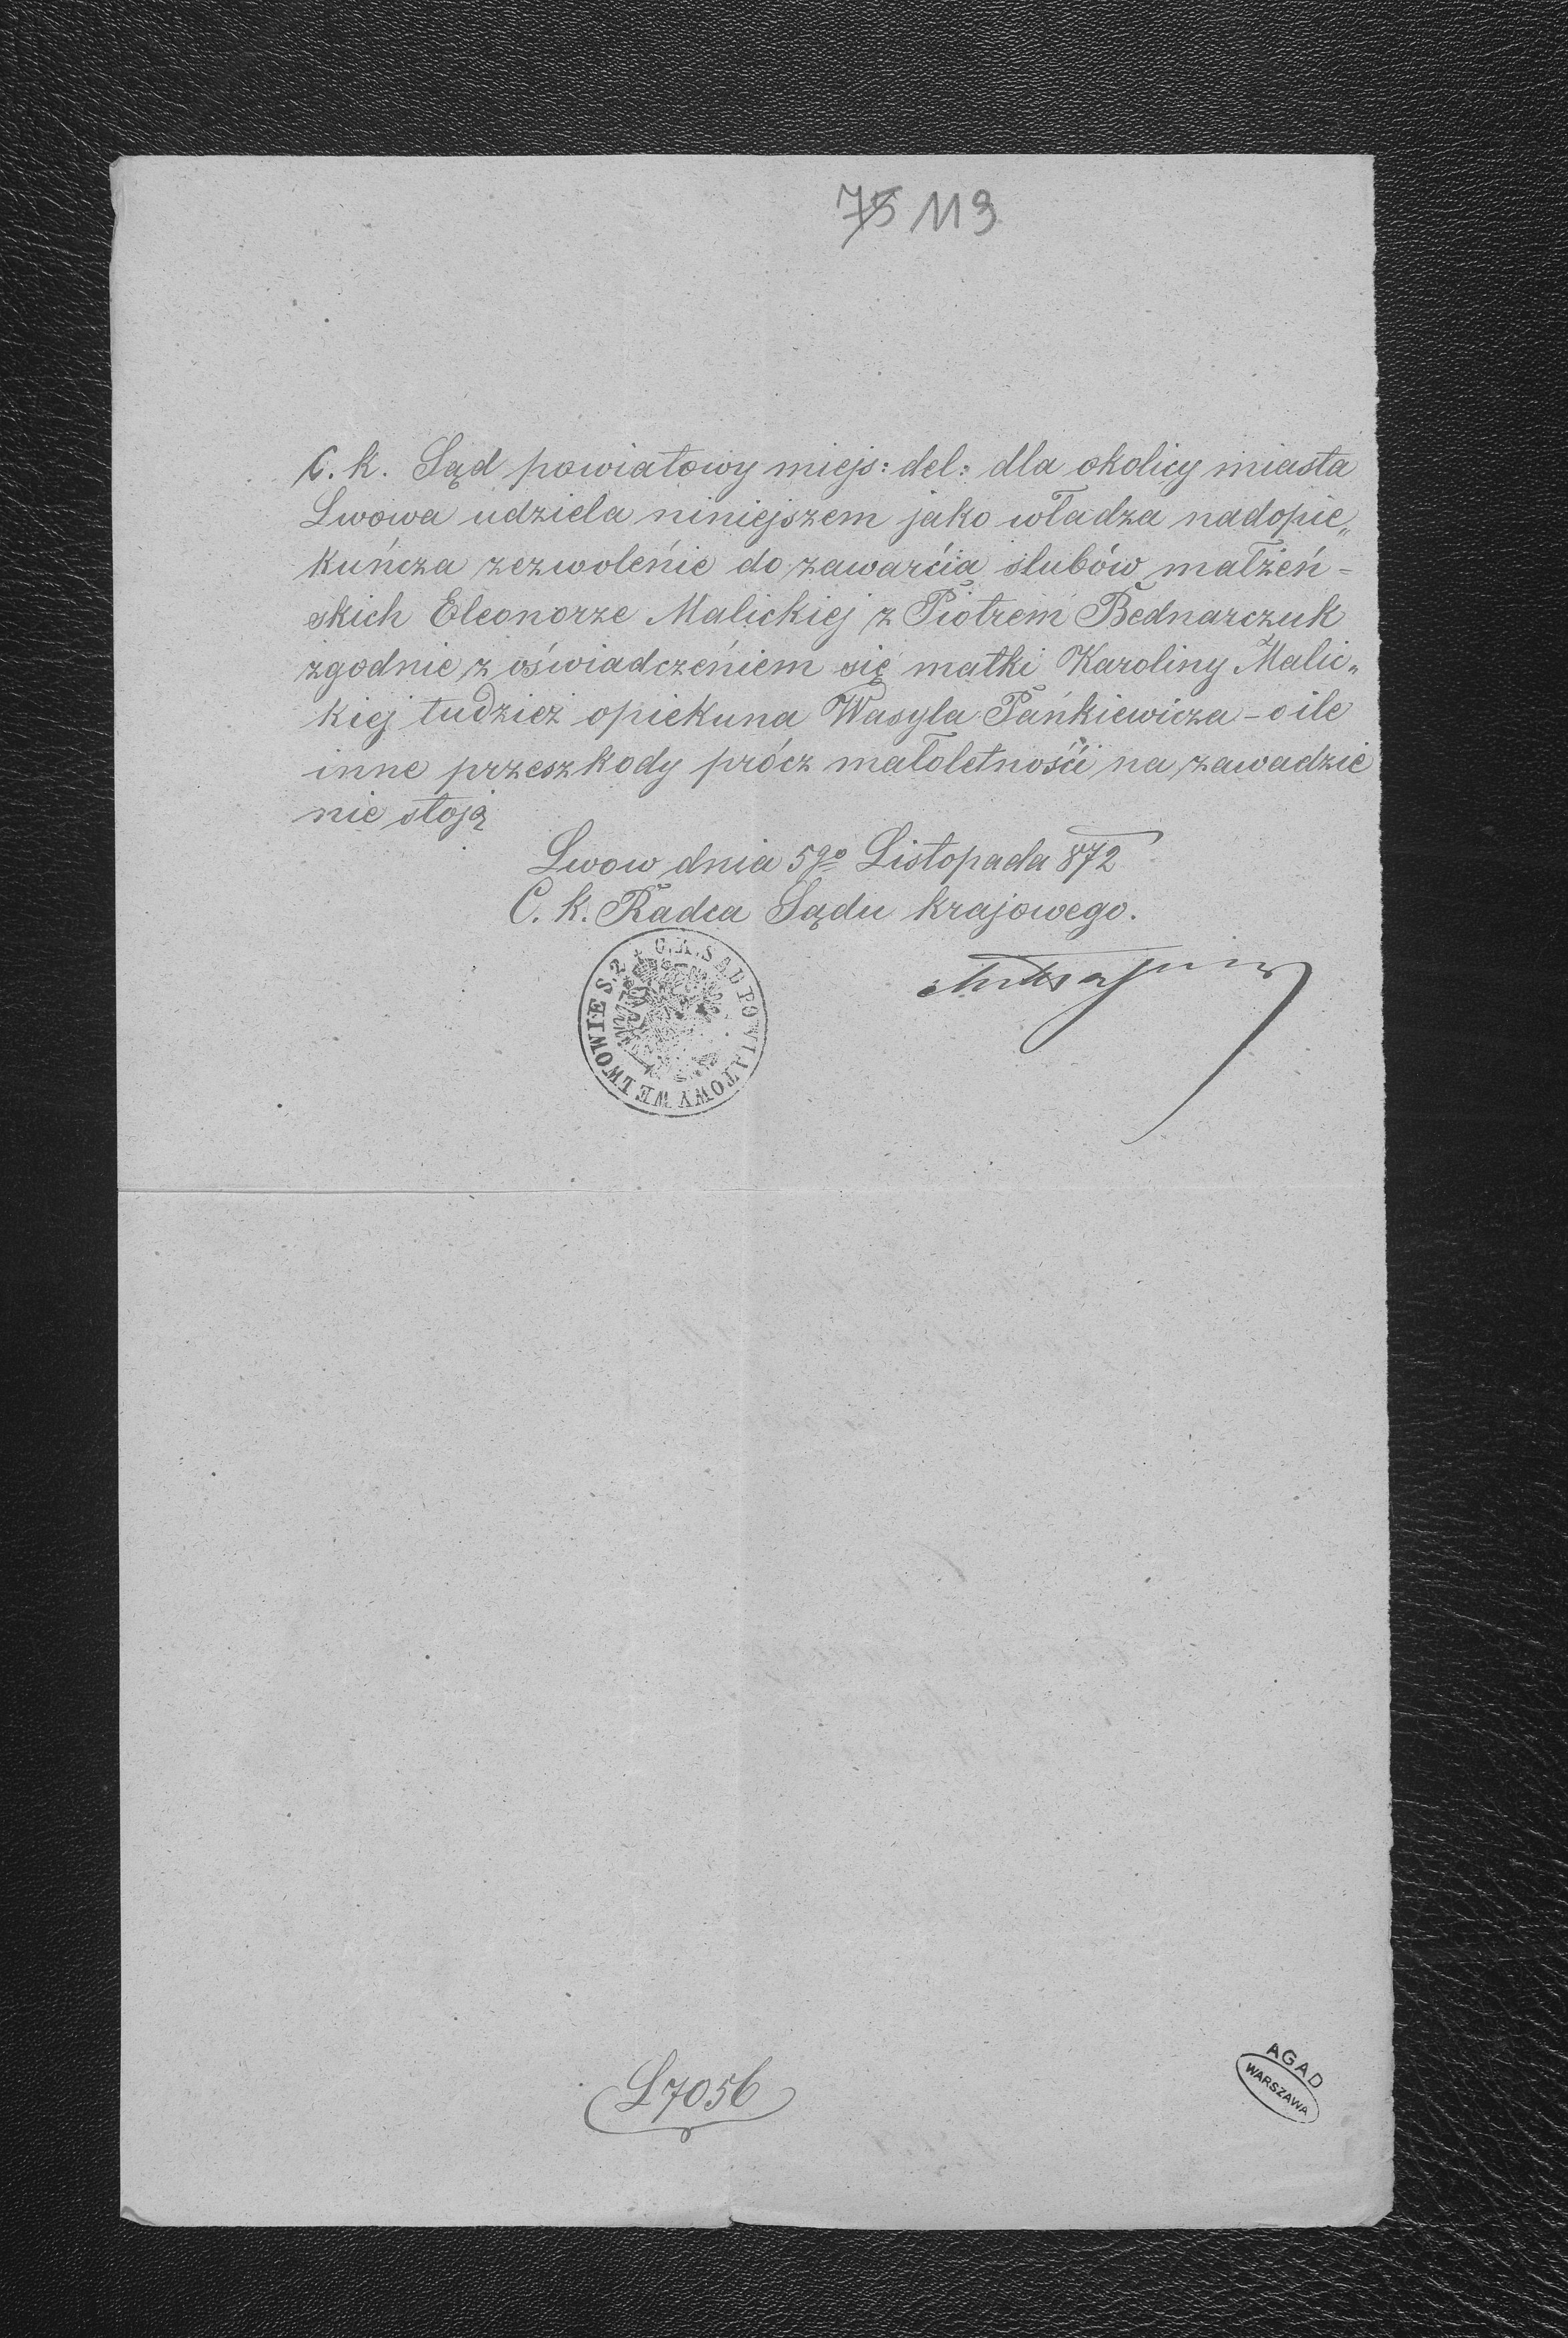 75 113
C. k. Sąd powiatowy miejs: del: dla okolicy miasta
Lwowa udziela niniejszem jako władza nadopie„
kuńcza zezwolenie do zawarcia slubów małżeń-
skich Eleonorze Malickiej z Piotrem Bednarczuk
zgodnie z oświadczeniem się matki Karoliny Malic„
kiej tudzież opiekuna Wasyla Pańkiewicza - o ile
inne przeszkody prócz małoletności na zawadzie
nie stoją
Lwow dnia 5go Listopada 872
C. k. Radca Sądu krajowego.
C. K. SĄD POWIATOWY WE LWOWIE S. 2
L 7056
AGAD
WARSZAWA